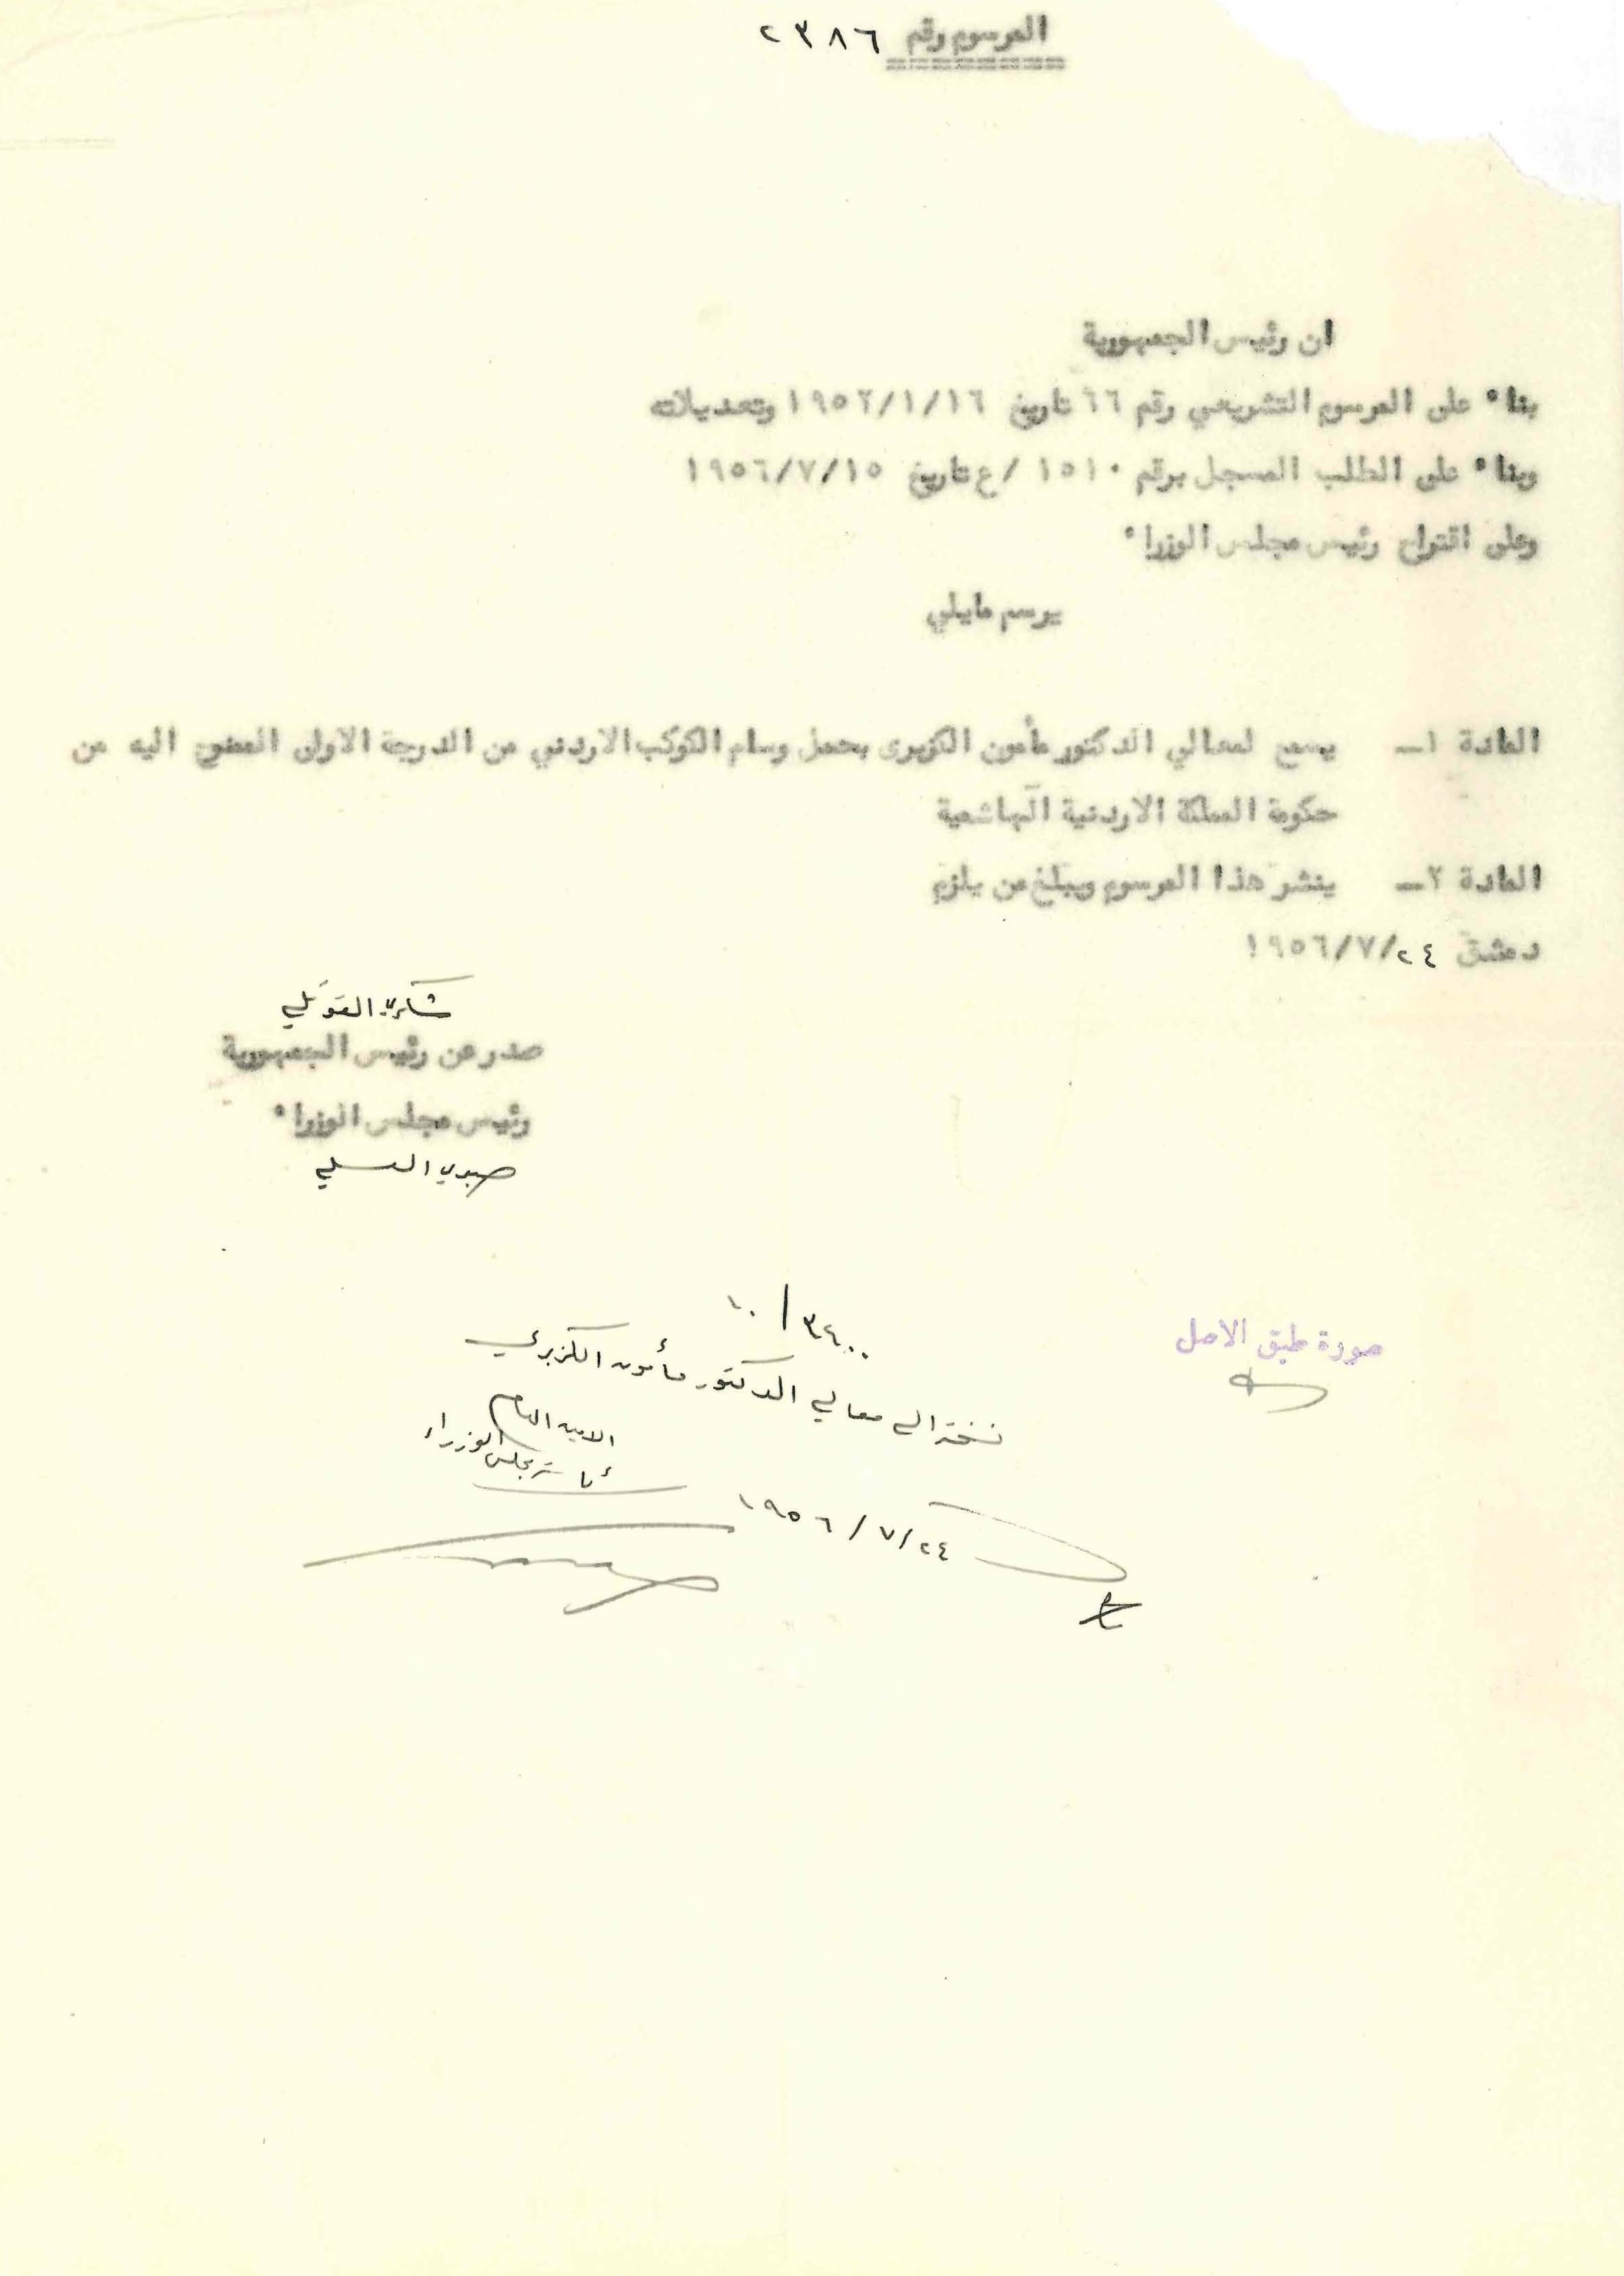 المرسوم رقم ٢٣٨٦
ان رئيس الجمهورية
بناء على المرسوم التشريعي رقم ٦٦ تاريخ ١٩٥٢/١/١٦ وتعديلاته
وبناء على الطلب المسجل برقم ١٥١٠ /ع تاريخ ١٩٥٦/٧/١٥
وعلى اقتراح رئيس مجلس الوزراء
يرسم مايلي
المادة ١ـ يسمح لمعالي الدكتور مأمون الكزبرى بحمل وسام الكوكب الاردني من الدرجة الاولى الممنوح اليه من
حكومة المملكة الاردنية الهاشمية
المادة ٢ـ ينشر هذا المرسوم ويبلغ من يلزم
دمشق ١٩٥٦/٧/٢٤
شكري القوتلي
صدر عن رئيس الجمهورية
رئيس مجلس الوزراء
صبري العسلي
صورة طبق الاصل
١٠/٣٤٠٠
نسخة الى معالي الدكتور مأمون الكزبري
الامين العام
لرئاسة مجلس الوزراء
١٩٥٦/٧/٢٤